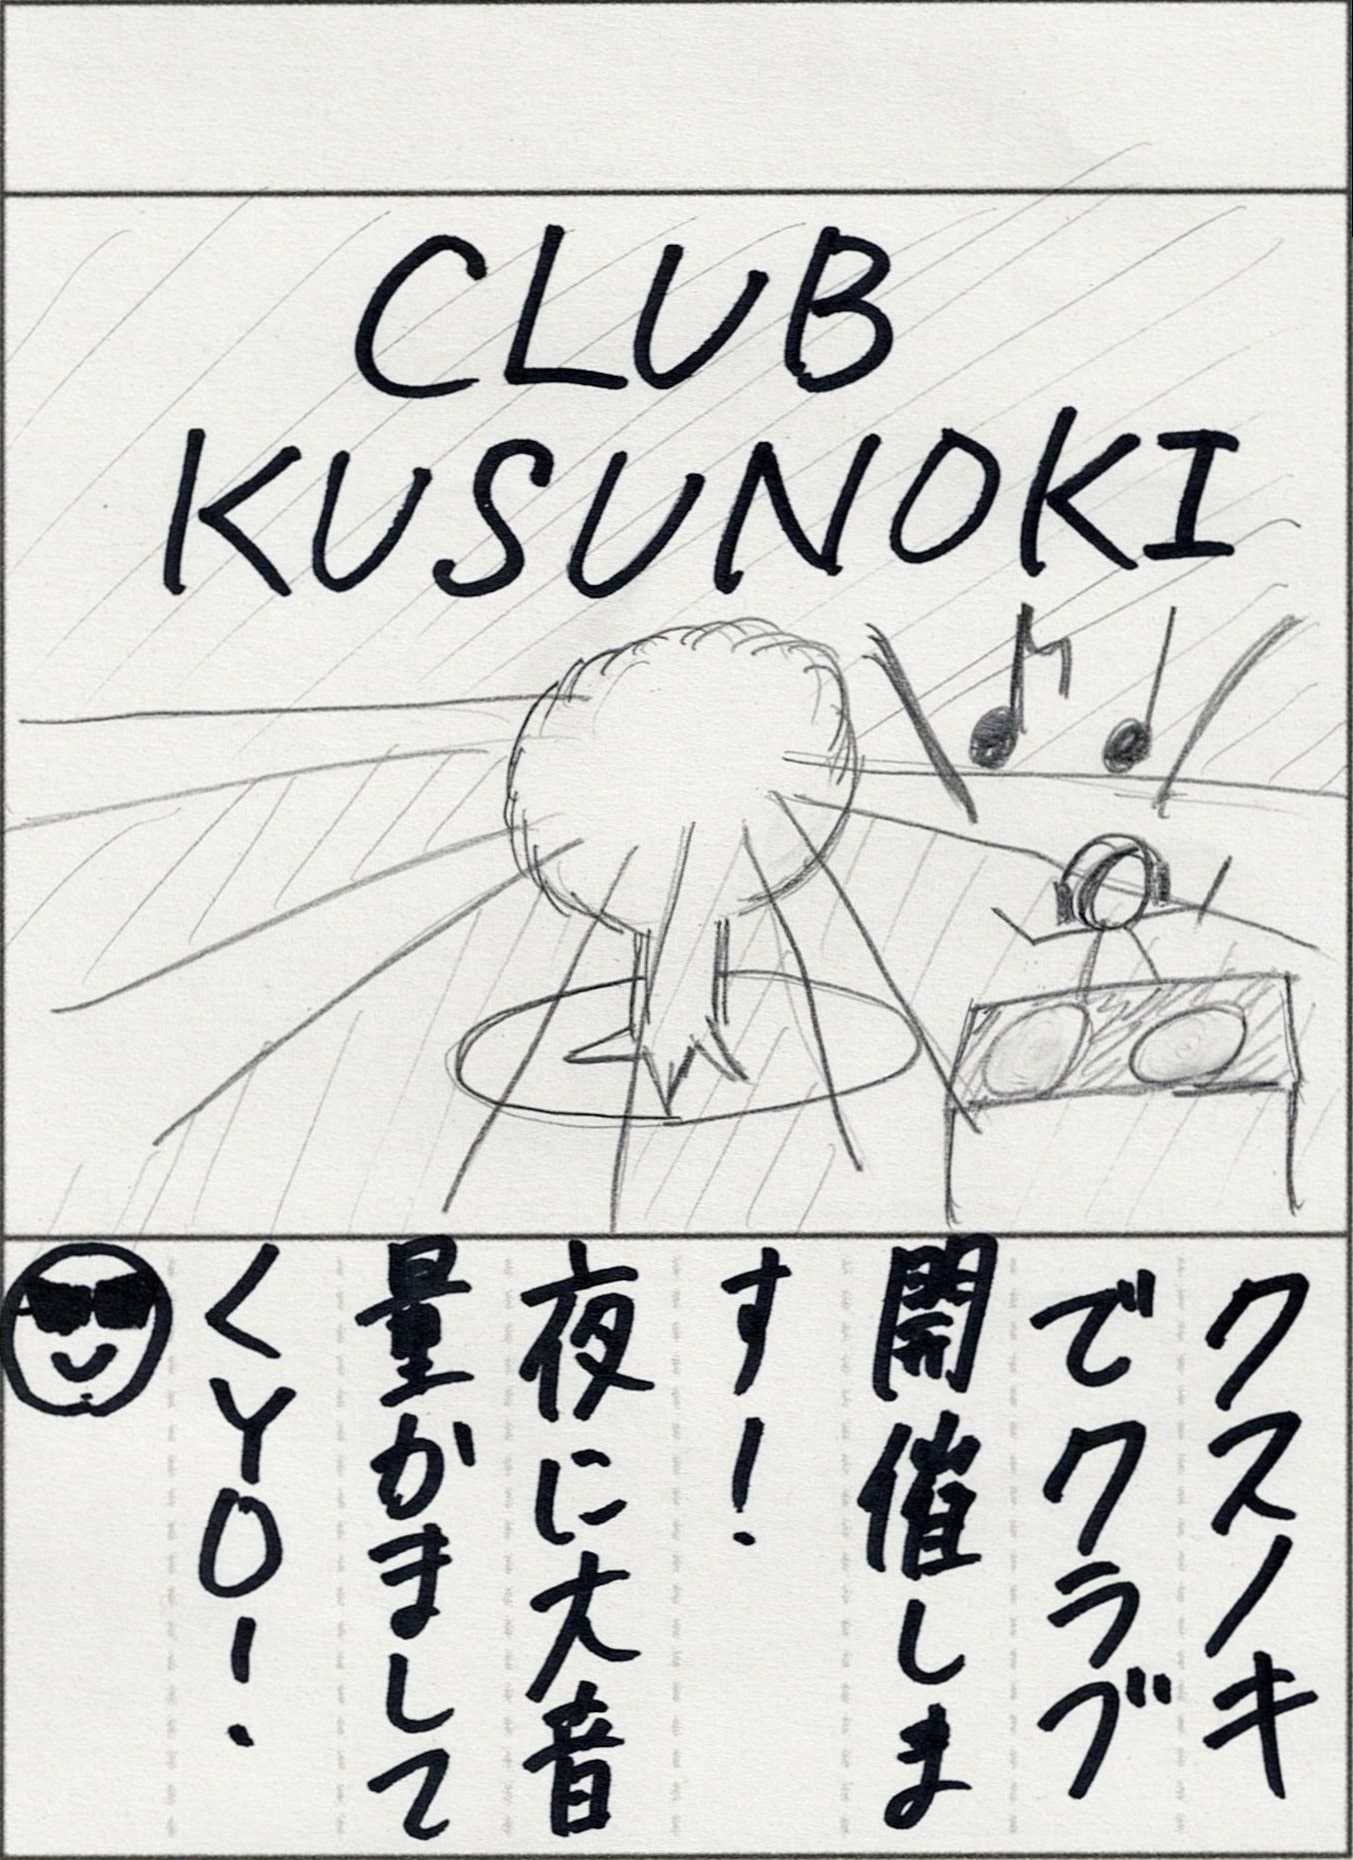 CLUB
KUSUNOKI
クスノキ
でクラブ
開催しま
す!
夜に大音
量かまして
くYO!